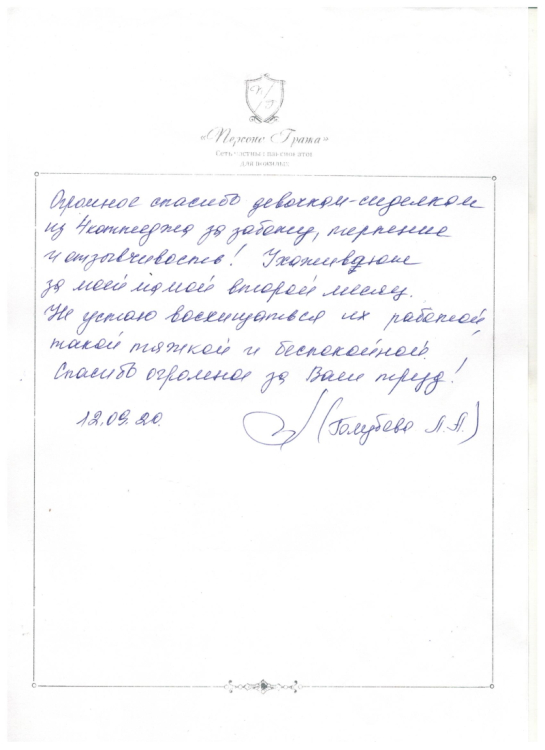 «Персоне Гража»
Сеть частных пансионатов
для пожилых
Огромное спасибо девочкам-сиделкам
из 4 коттеджа за заботу, терпение
и отзывчивость! Ухаживают
за моей мамой второй месяц.
Не устаю восхищаться их работой,
такой тяжкой и беспокойной.
Спасибо огромное за Ваш труд!
12.09.20. (Голубева Л.А.)